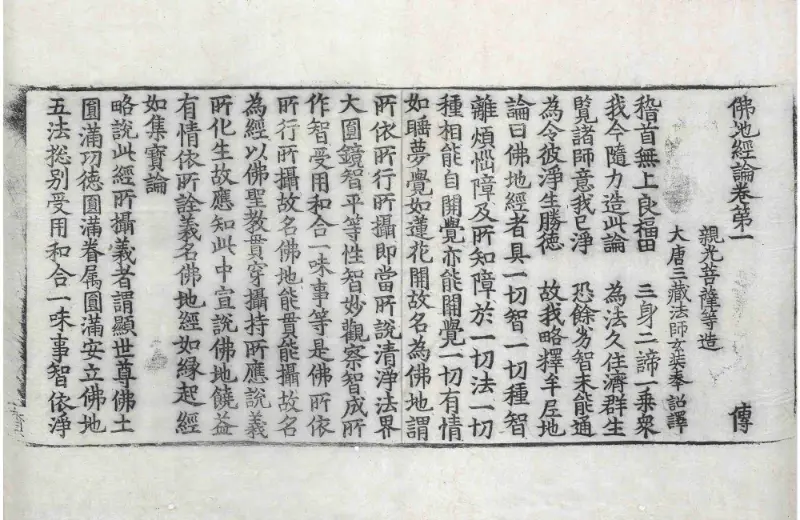 佛地經論卷第一 傳
親光菩薩等造
大唐三藏法師玄奘奉 詔譯
稽首無上良福田 三身二諦一乘衆
我今隨力造此論 為法久住濟群生
覽諸師意我已淨 恐餘劣智未能通
為令彼淨生勝德 故我略釋牟尼地
論曰佛地經者具一切智一切種智
離煩惱障及所知障於一切法一切
種相能自開覺亦能開覺一切有情
如睡夢覺如蓮花開故名為佛地謂
所依所行所攝即當所說清淨法界
大圓鏡智平等性智妙觀察智成所
作智受用和合一味事等是佛所依
所行所攝故名佛地能貫能攝故名
為經以佛聖教貫穿攝持所應說義
所化生故應知此中宣說佛地饒益
有情依所詮義名佛地經如緣起經
如集寶論
略說此經所攝義者謂顯世尊佛土
圓滿功德圓滿眷屬圓滿安立佛地
五法總別受用和合一味事智依淨